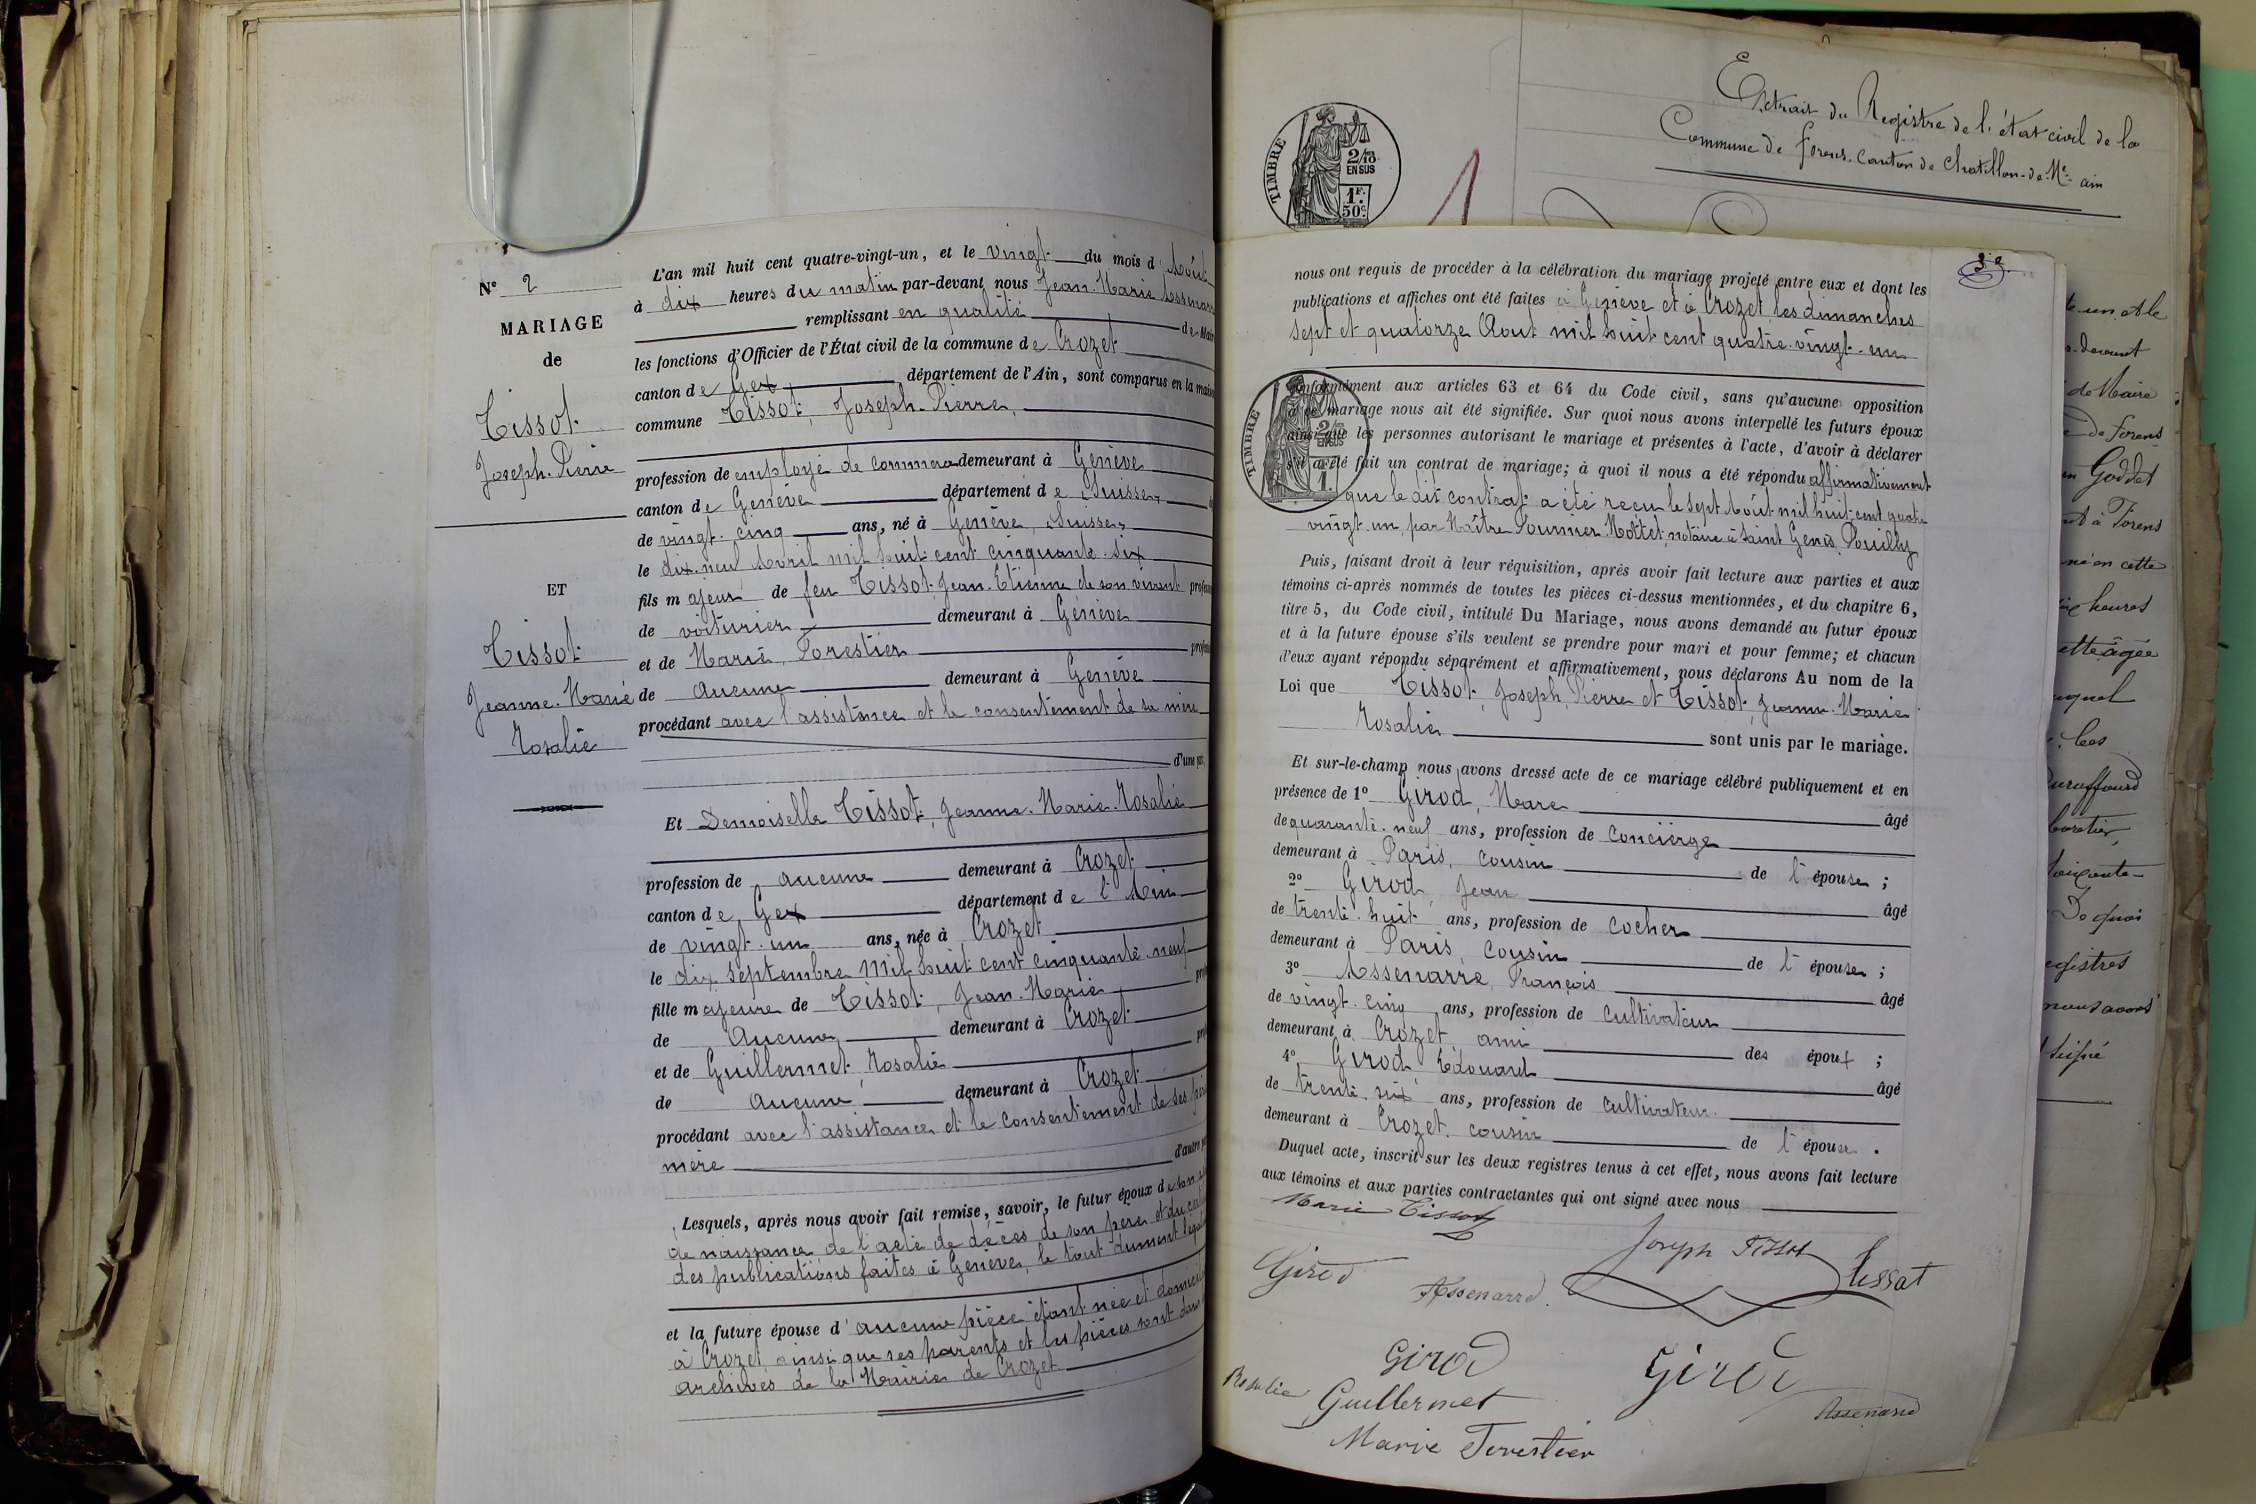 N° 2
MARIAGE
de
Tissot
Joseph-Pierre
ET
Tissot
Jeanne-Marie
Rosalie
L'an mil huit cent quatre-vingt-un, et le vingt du mois d'Août
à dix heures du matin par-devant nous Jean-Marie
remplissant en qualité de Maire
les fonctions d'Officier de l'État civil de la commune de Crozet
canton de Gex département de l'Ain, sont comparus en la
commune Tissot, Joseph-Pierre,
profession de employé de commerce demeurant à Genève
canton de Genève département de Suisse,
de vingt-cinq ans, né à Genève, Suisse,
le dix-neuf Avril mil huit cent cinquante-six
fils majeur de feu Tissot Jean-Etienne de son vivant
de voiturier demeurant à Genève
et de Marie Forestier
de aucune demeurant à Genève
procédant avec l'assistance et le consentement de sa mère
d'une
Et Demoiselle Tissot, Jeanne-Marie-Rosalie
profession de aucune demeurant à Crozet
canton de Gex département de l'Ain
de vingt-un ans, née à Crozet
le dix septembre mil huit cent cinquante-neuf
fille majeure de Tissot, Jean-Marie,
de Aucune demeurant à Crozet
et de Guillermet, Rosalie
de aucune demeurant à Crozet
procédant avec l'assistance et le consentement de ses
mère
Lesquels, après nous avoir fait remise, savoir, le futur époux de son
de naissance de l'acte de décès de son père et du
des publications faites à Genève, le tout dument
et la future épouse d'aucune pièce étant née et
à Crozet ainsi que ses parents et les pièces sont dans
archives de la Mairie de Crozet
Extrait du Registre de l'état civil de la
Commune de Forens. Canton de Chatillon-de-Me- ain
TIMBRE
2/10
EN SUS
1F.
50c
nous ont requis de procéder à la célébration du mariage projeté entre eux et dont les
publications et affiches ont été faites à Genève et à Crozet les dimanches
sept et quatorze Aout mil huit cent quatre-vingt-un
conformément aux articles 63 et 64 du Code civil, sans qu'aucune opposition
à ce mariage nous ait été signifiée. Sur quoi nous avons interpellé les futurs époux
ainsi que les personnes autorisant le mariage et présentes à l'acte, d'avoir à déclarer
s'il a été fait un contrat de mariage; à quoi il nous a été répondu affirmativement
que le dit contrat a été reçu le sept Août mil huit cent quatre
vingt un par Maître Fournier-Mottet, notaire à Saint Genis Pouilly
TIMBRE
2/10
EN SUS
Puis, faisant droit à leur réquisition, après avoir fait lecture aux parties et aux
témoins ci-après nommés de toutes les pièces ci-dessus mentionnées, et du chapitre 6,
titre 5, du Code civil, intitulé Du Mariage, nous avons demandé au futur époux
et à la future épouse s'ils veulent se prendre pour mari et pour femme; et chacun
d'eux ayant répondu séparément et affirmativement, nous déclarons Au nom de la
Loi que Tissot, Joseph, Pierre et Tissot, Jeanne-Marie
Rosalie sont unis par le mariage.
Et sur-le-champ nous avons dressé acte de ce mariage célébré publiquement et en
présence de 1° Girod, Marc âgé
de quarante-neuf ans, profession de concierge
demeurant à Paris, cousin de l'épouse ;
2° Girod, Jean âgé
de trente-huit ans, profession de cocher
demeurant à Paris, cousin de l'épouse ;
3° Assenarre, François âgé
de vingt-cinq ans, profession de cultivateur
demeurant à Crozet, ami des époux ;
4° Girod Edouard âgé
de trente-six ans, profession de cultivateur
demeurant à Crozet. cousin de l'épouse .
Duquel acte, inscrit sur les deux registres tenus à cet effet, nous avons fait lecture
aux témoins et aux parties contractantes qui ont signé avec nous
Marie Tissot
Joseph Tissot
Tissot
Girod
Assenarre
Girod
Girod
Rosalie Guillermet
Assenarre
Marie Forestier
de Maire
de Forens
Goddet
à Forens
né en cette
heures
âgée
registres
nous avons
signé